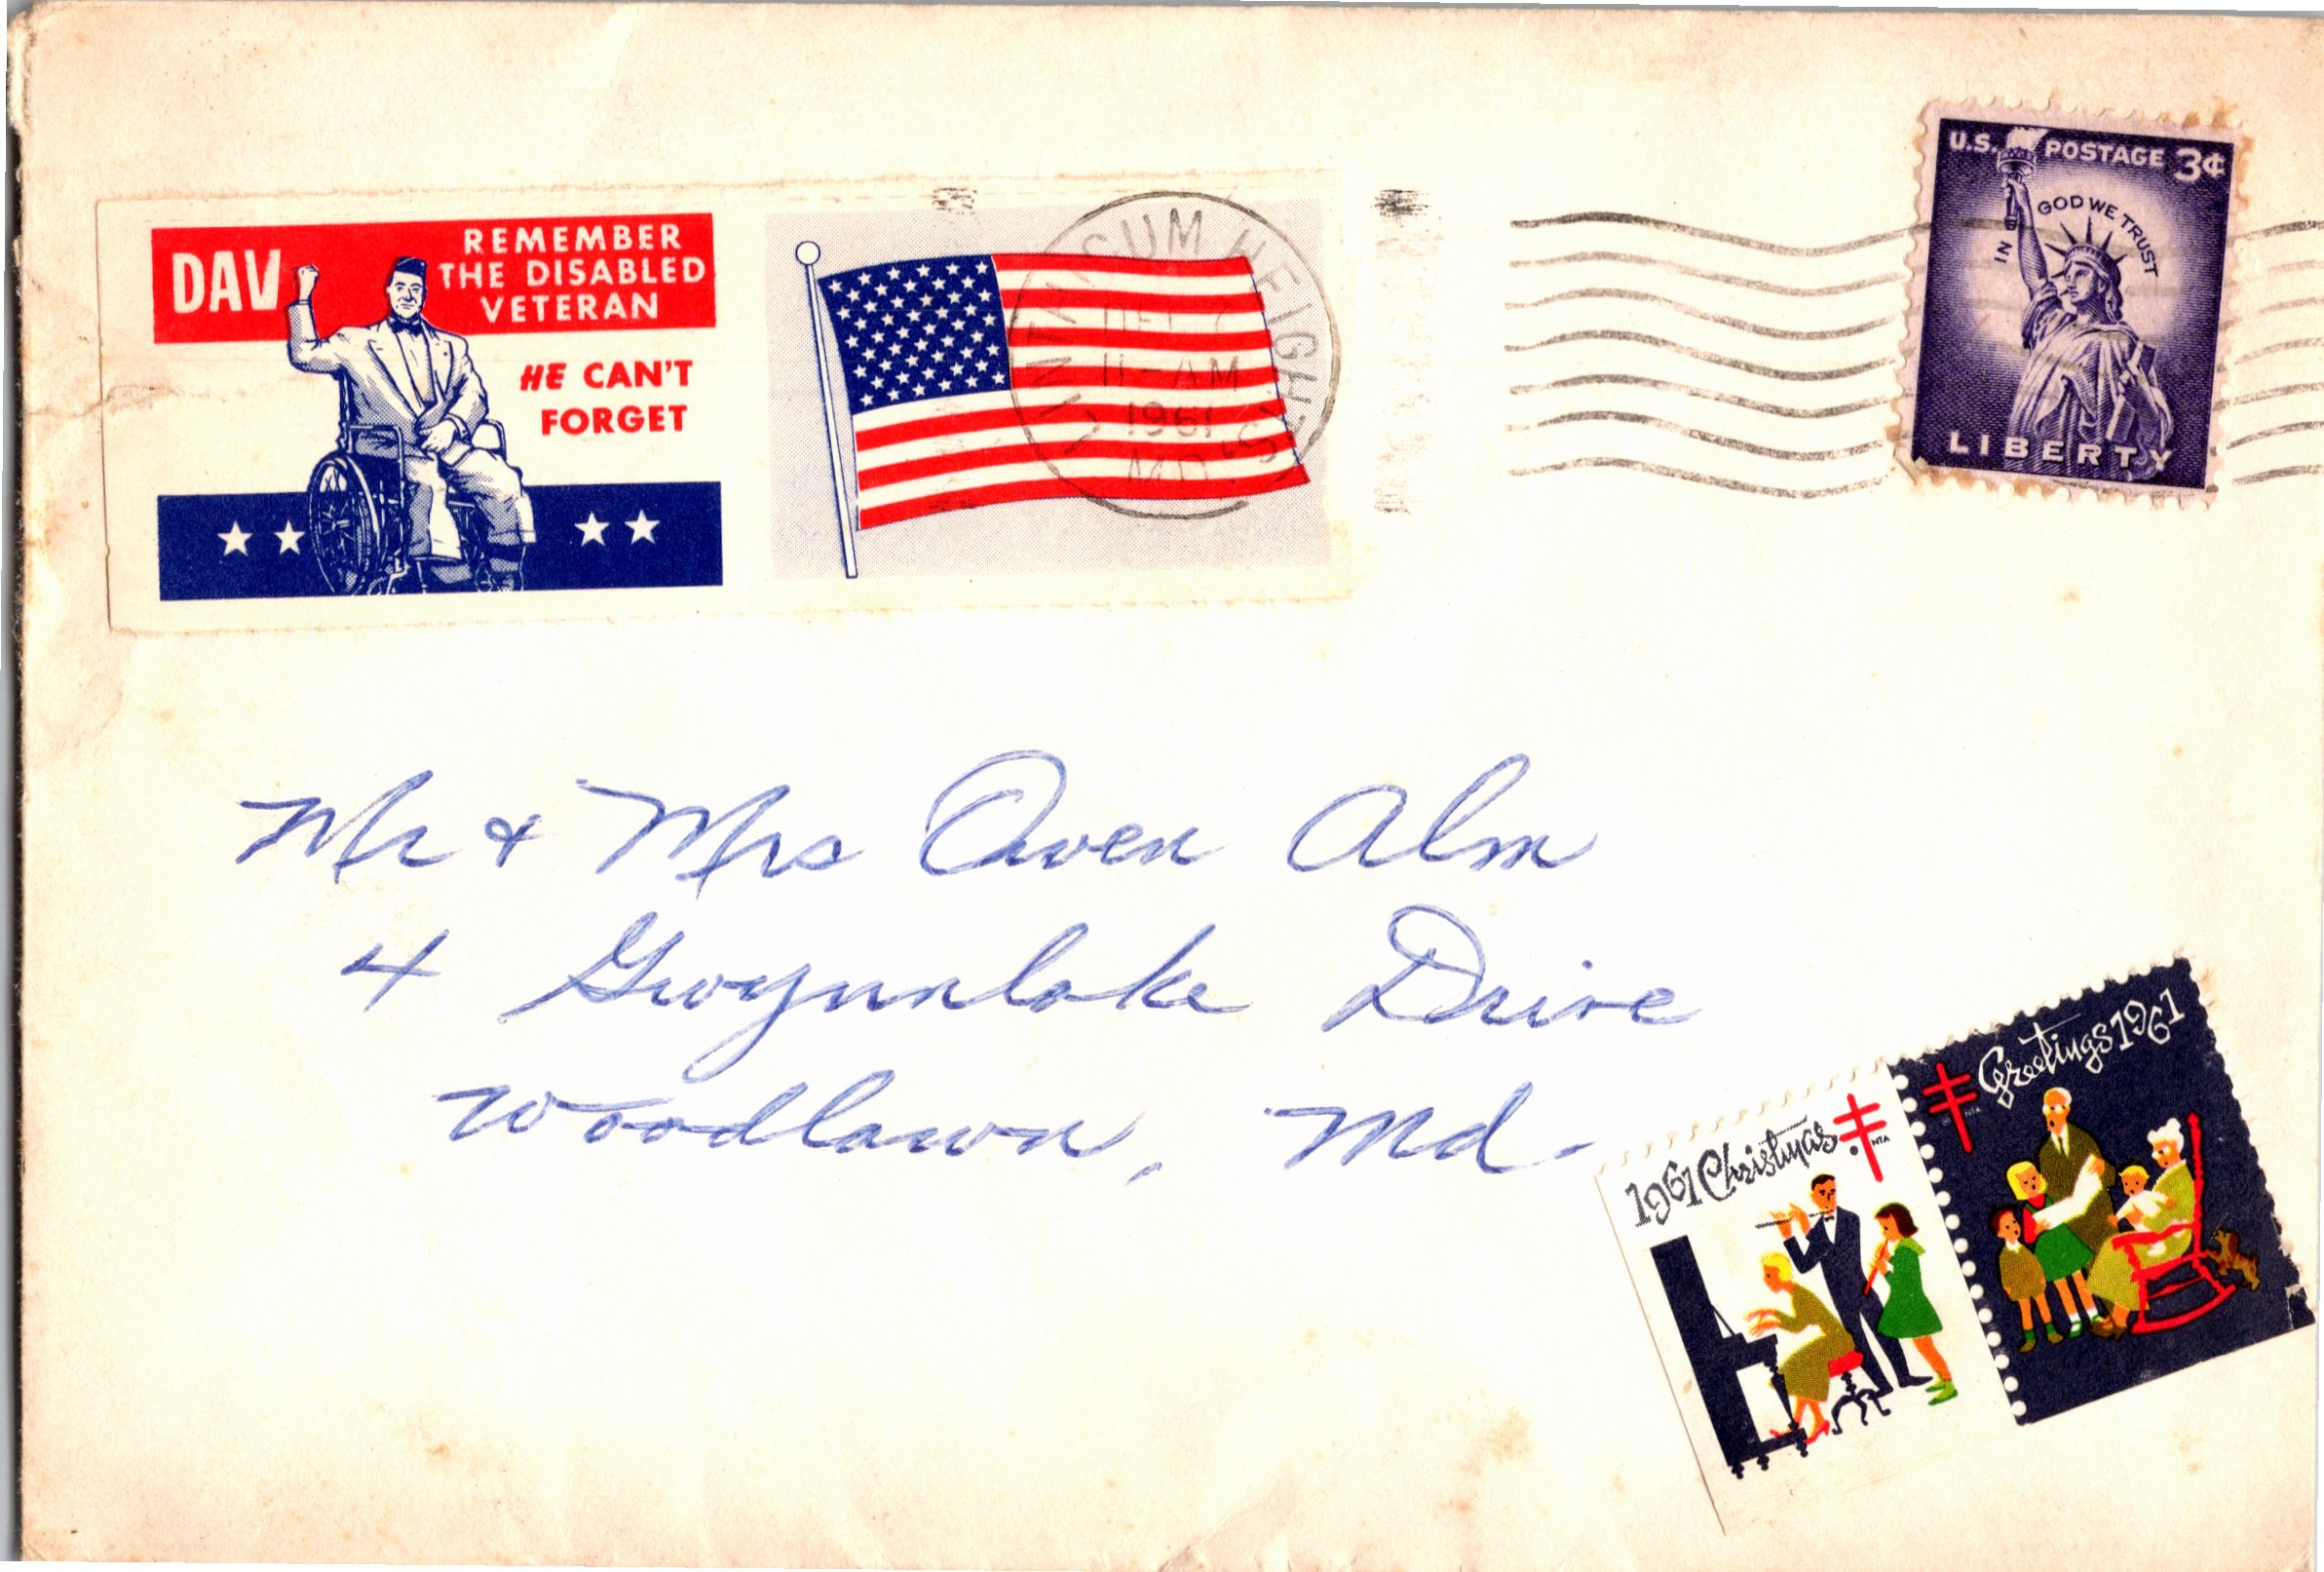 DAV
REMEMBER
THE DISABLED
VETERAN
HE CAN'T
FORGET
HEIGHTS,
11-AM
1961
MD.
U.S. POSTAGE 3¢
IN GOD WE TRUST
LIBERTY
Mr & Mrs Owen Alm
4 Gwynnlake Drive
Woodlawn, Md.
1961 Christmas
NTA
Greetings 1961
NTA